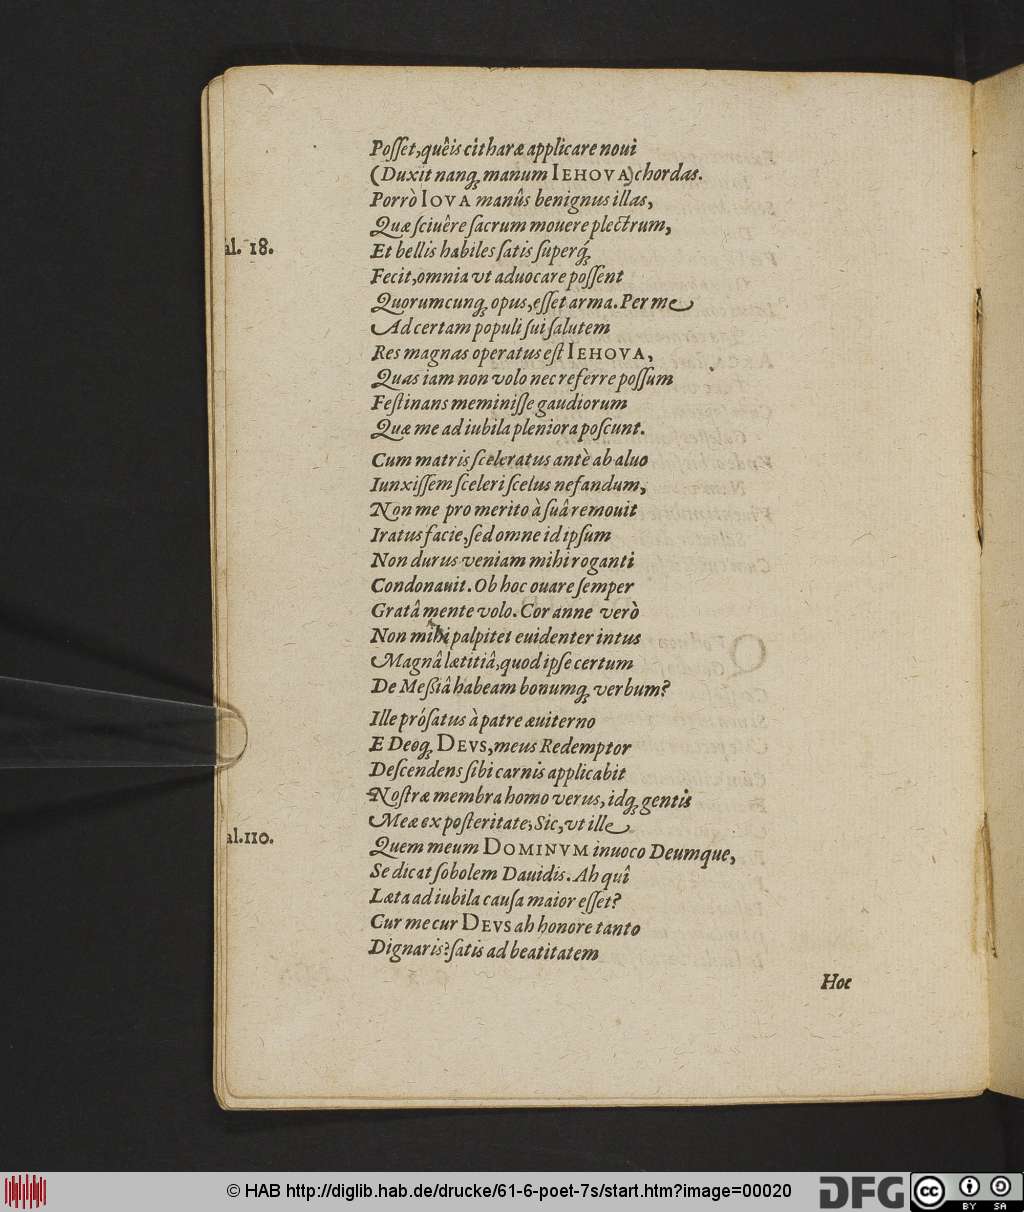 Posset, quêis citharæ applicare noui
(Duxit nanq́; manum IEHOVA) chordas.
Porrò IOVA manûs benignus illas,
Quæ sciuêre sacrum mouere plectrum,
al. 18.
Et bellis habiles satis superq́;
Fecit, omnia vt aduocare possent
Quorumcunq; opus, esset arma. Per me
Ad certam populi sui salutem
Res magnas operatus est IEHOVA,
Quas iam non volo nec referre possum
Festinans meminisse gaudiorum
Quæ me ad iubila pleniora poscunt.
Cum matris sceleratus antè ab aluo
Iunxissem sceleri scelus nefandum,
Non me pro merito à suâ remouit
Iratus facie, sed omne id ipsum
Non durus veniam mihi roganti
Condonauit. Ob hoc ouare semper
Gratâ mente volo. Cor anne verò
Non mihi palpitet euidenter intus
Magnâ lætitiâ, quod ipse certum
De Meßiâ habeam bonumq; verbum?
Ille prósatus à patre æuiterno
E Deoq; DEVS, meus Redemptor
Descendens sibi carnis applicabit
Nostræ membra homo verus, idq; gentis
Meæ ex posteritate, Sic, vt ille
al. 110.
Quem meum DOMINVM inuoco Deumque,
Se dicat sobolem Dauidis. Ah quî
Læta ad iubila causa maior esset?
Cur me cur DEVS ah honore tanto
Dignaris? satis ad beatitatem
Hoc
© HAB http://diglib.hab.de/drucke/61-6-poet-7s/start.htm?image=00020
DFG
cc
BY SA